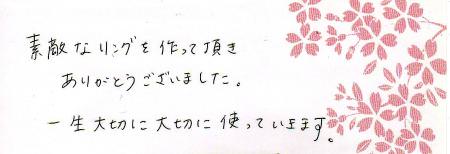 素敵なリングを作って頂き
ありがとうございました。
一生大切に大切に使っていきます。